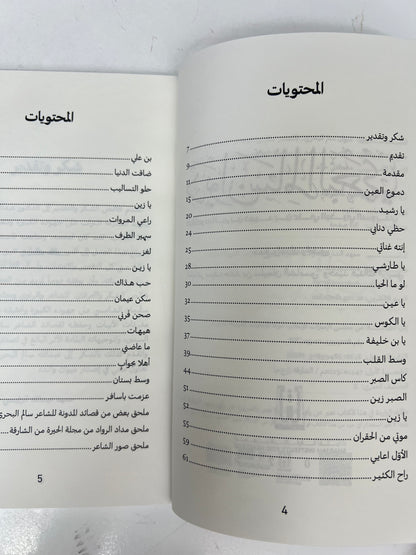 المحتويات
شكر وتقدير 7
تقديم 9
مقدمة 11
دموع العين 15
يا رشيد 20
حظي دنابي 24
إنته غناتي 25
يا طارشي 28
لو ما الحيا 30
يا عين 32
يا الكوس 35
يا بن خليفة 37
وسط القلب 39
كاس الصبر 44
الصبر زين 51
يا زين 52
موتي من الحقران 55
الأول اعابي 59
راح الكثير 63
4
المحتويات
بن علي
ضاقت الدنيا
حلو التساليب
يا زين
راعي المروات
سهير الطرف
لغز
يا زين
حب هذاك
سكن عيمان
صحن قرني
هيهات
ما عاضني
أهلا بجواب
وسط بستان
عزمت باسافر
ملحق بعض من قصائد المدونة للشاعر سالم البحري
ملحق مداد الرواد من مجلة الحيرة من الشارقة
ملحق صور الشاعر
5